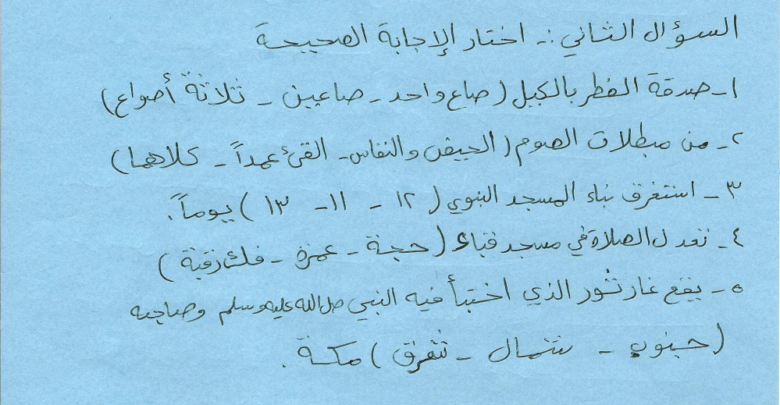 السؤال الثاني :- اختار الإجابة الصحيحة
١- صدقة الفطر بالكيل (صاع واحد - صاعين - ثلاثة أصواع)
٢- من مبطلات الصوم (الحيض والنفاس - القئ عمداً - كلاهما)
٣- استغرق بناء المسجد النبوي (١٢ - ١١ - ١٣) يوماً.
٤- تعدل الصلاة في مسجد قباء (حجة - عمرة - فك رقبة)
٥- يقع غار ثور الذي اختبأ فيه النبي صل الله عليه وسلم وصاحبه
(جنوب - شمال - شرق) مكة.